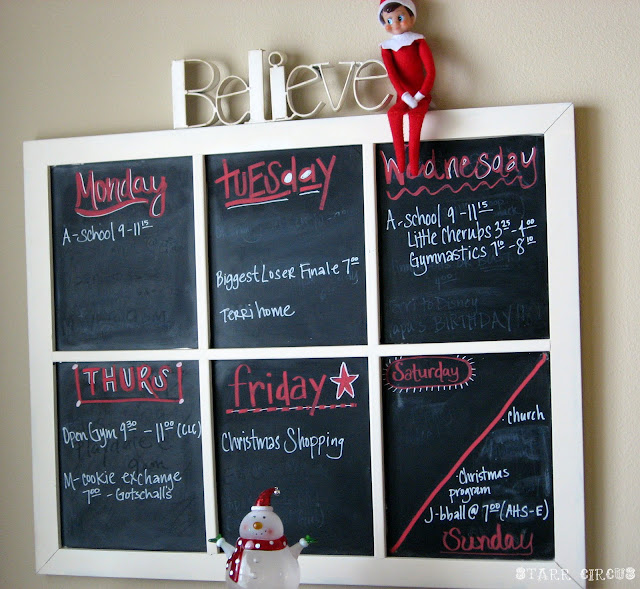 Believe
Monday
A-school 9-11 15
TUESday
Biggest Loser Finale 7 00
Terri home
Wednesday
A-school 9-11 15
Little Cherubs 3 25 - 4 00
Gymnastics 7 10 - 8 10
Papa's BIRTHDAY!
THURS
Open Gym 9 30 - 11 00 (CLC)
M-cookie exchange
7 00 - Gotschall's
friday
Christmas Shopping
Saturday
· Church
· Christmas
program
J-bball @ 7 00 (AHS-E)
Sunday
STARR CIRCUS